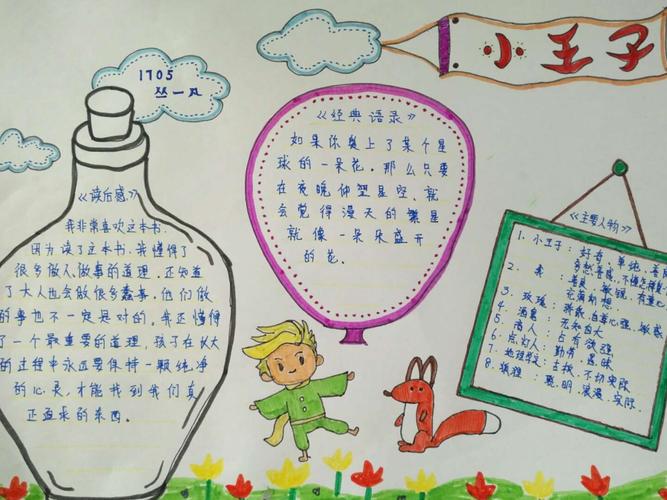 小王子
1705
丛一凡
《读后感》
我非常喜欢这本书.
因为读了这本书,我懂得了
很多做人做事的道理.还知道
了大人也会做很多蠢事.他们做
的事也不一定是对的.我还懂得
了一个最重要的道理,孩子在长大
的过程中永远要保持一颗纯净
的心灵,才能找到我们真
正追求的东西.
《经典语录》
如果你爱上了某个星
球的一朵花.那么只要
在夜晚仰望星空.就
会觉得漫天的繁星
就像一朵朵盛开
的花.
《主要人物》
1.小王子:好奇,单纯,善
多愁善感,不懂怎样
2. :善良,敏锐,有
充满幻想.
3.玫瑰:骄傲,自尊心强,敏感
4.酒鬼:无知自大
5.商人:占有欲强
6.点灯人:勤劳,愚昧
7.地理学家:古板,不切实际
8.狐狸:聪明,浪漫,实际.